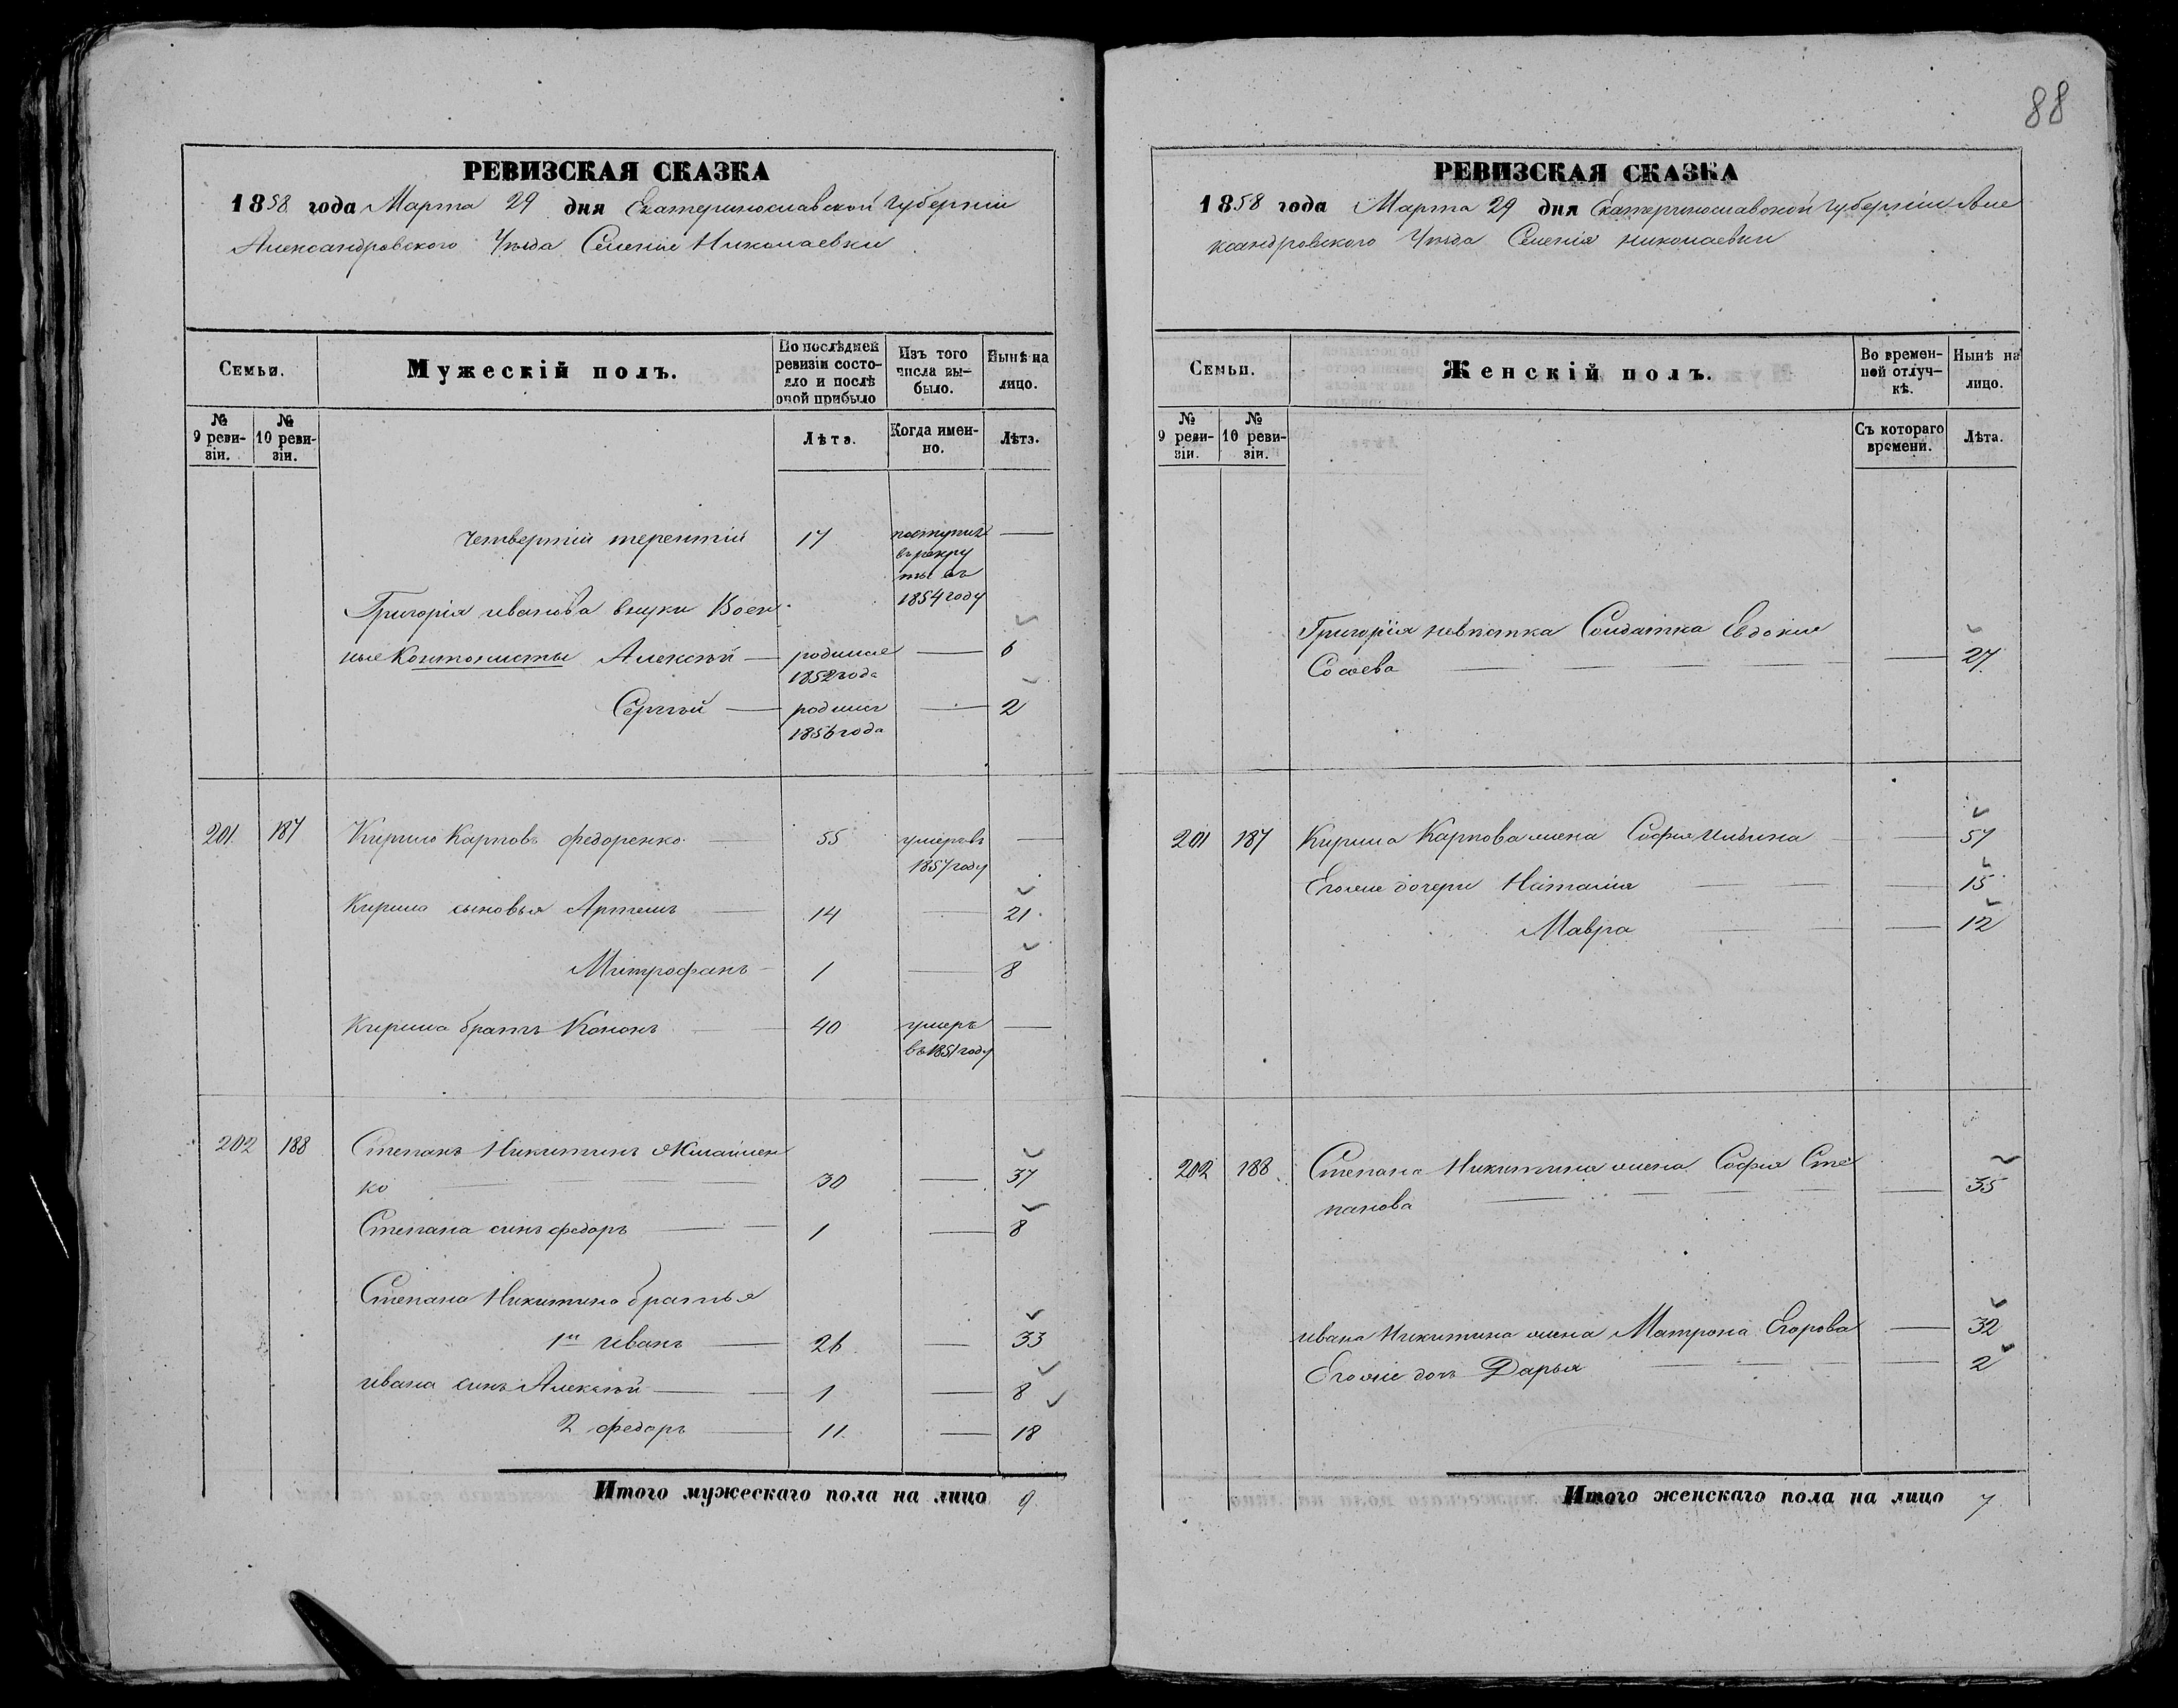 88
РЕВИЗСКАЯ СКАЗКА
1858 года Марта 29 дня Екатеринославской Губерніи
Александровского Уѣзда Селенія Николаевки
Семьи.
Мужескій полъ.
По послѣдней ревизіи состояло и послѣ оной прибыло
Изъ того числа выбыло.
Нынѣ на лицо.
№ 9 ревизіи.
№ 10 ревизіи.
Лѣта.
Когда именно.
Лѣта.
Четвертій терентій 17 поступил —
в рекру
ты въ
1854 году
Григорія иванова внуки Воен
ные Контонисты Алексѣй — родился — 6
1852 года
Сергѣй — родился — 2
1856 года
201 187 Кирило Карповъ федоренко — 55 умеръ въ —
1857 году
Кирила сыновья Артемъ — 14 — 21
Митрофанъ — 1 — 8
Кирила братъ Кононъ — 40 умеръ —
въ 1851 году
202 188 Степанъ Никитинъ
ко — 30 — 37
Степана синъ федоръ — 1 — 8
Степана Никитина братья
1й иванъ — 26 — 33
ивана синъ Алексѣй — 1 — 8
2 федоръ — 11 — 18
Итого мужескаго пола на лицо 9
РЕВИЗСКАЯ СКАЗКА
1858 года Марта 29 дня Екатеринославской Губерніи Але
ксандровского Уѣзда Селенія николаевки
Семьи.
Женскій полъ.
Во временной отлучкѣ.
Нынѣ на лицо.
№ 9 ревизіи.
№ 10 ревизіи.
Съ котораго времени.
Лѣта.
Григорія невѣстка Солдатка Евдокия
— — 27
201 187 Кирила Карпова жена София Ильина — 57
Егоже дочери Наталия — — 15
Мавра — — 12
202 188 Степана Никитина жена София Сте
панова — — 35
ивана Никитина жена Матрона Егорова — 32
Егоже доч Дарья — — 2
Итого женскаго пола на лицо 7